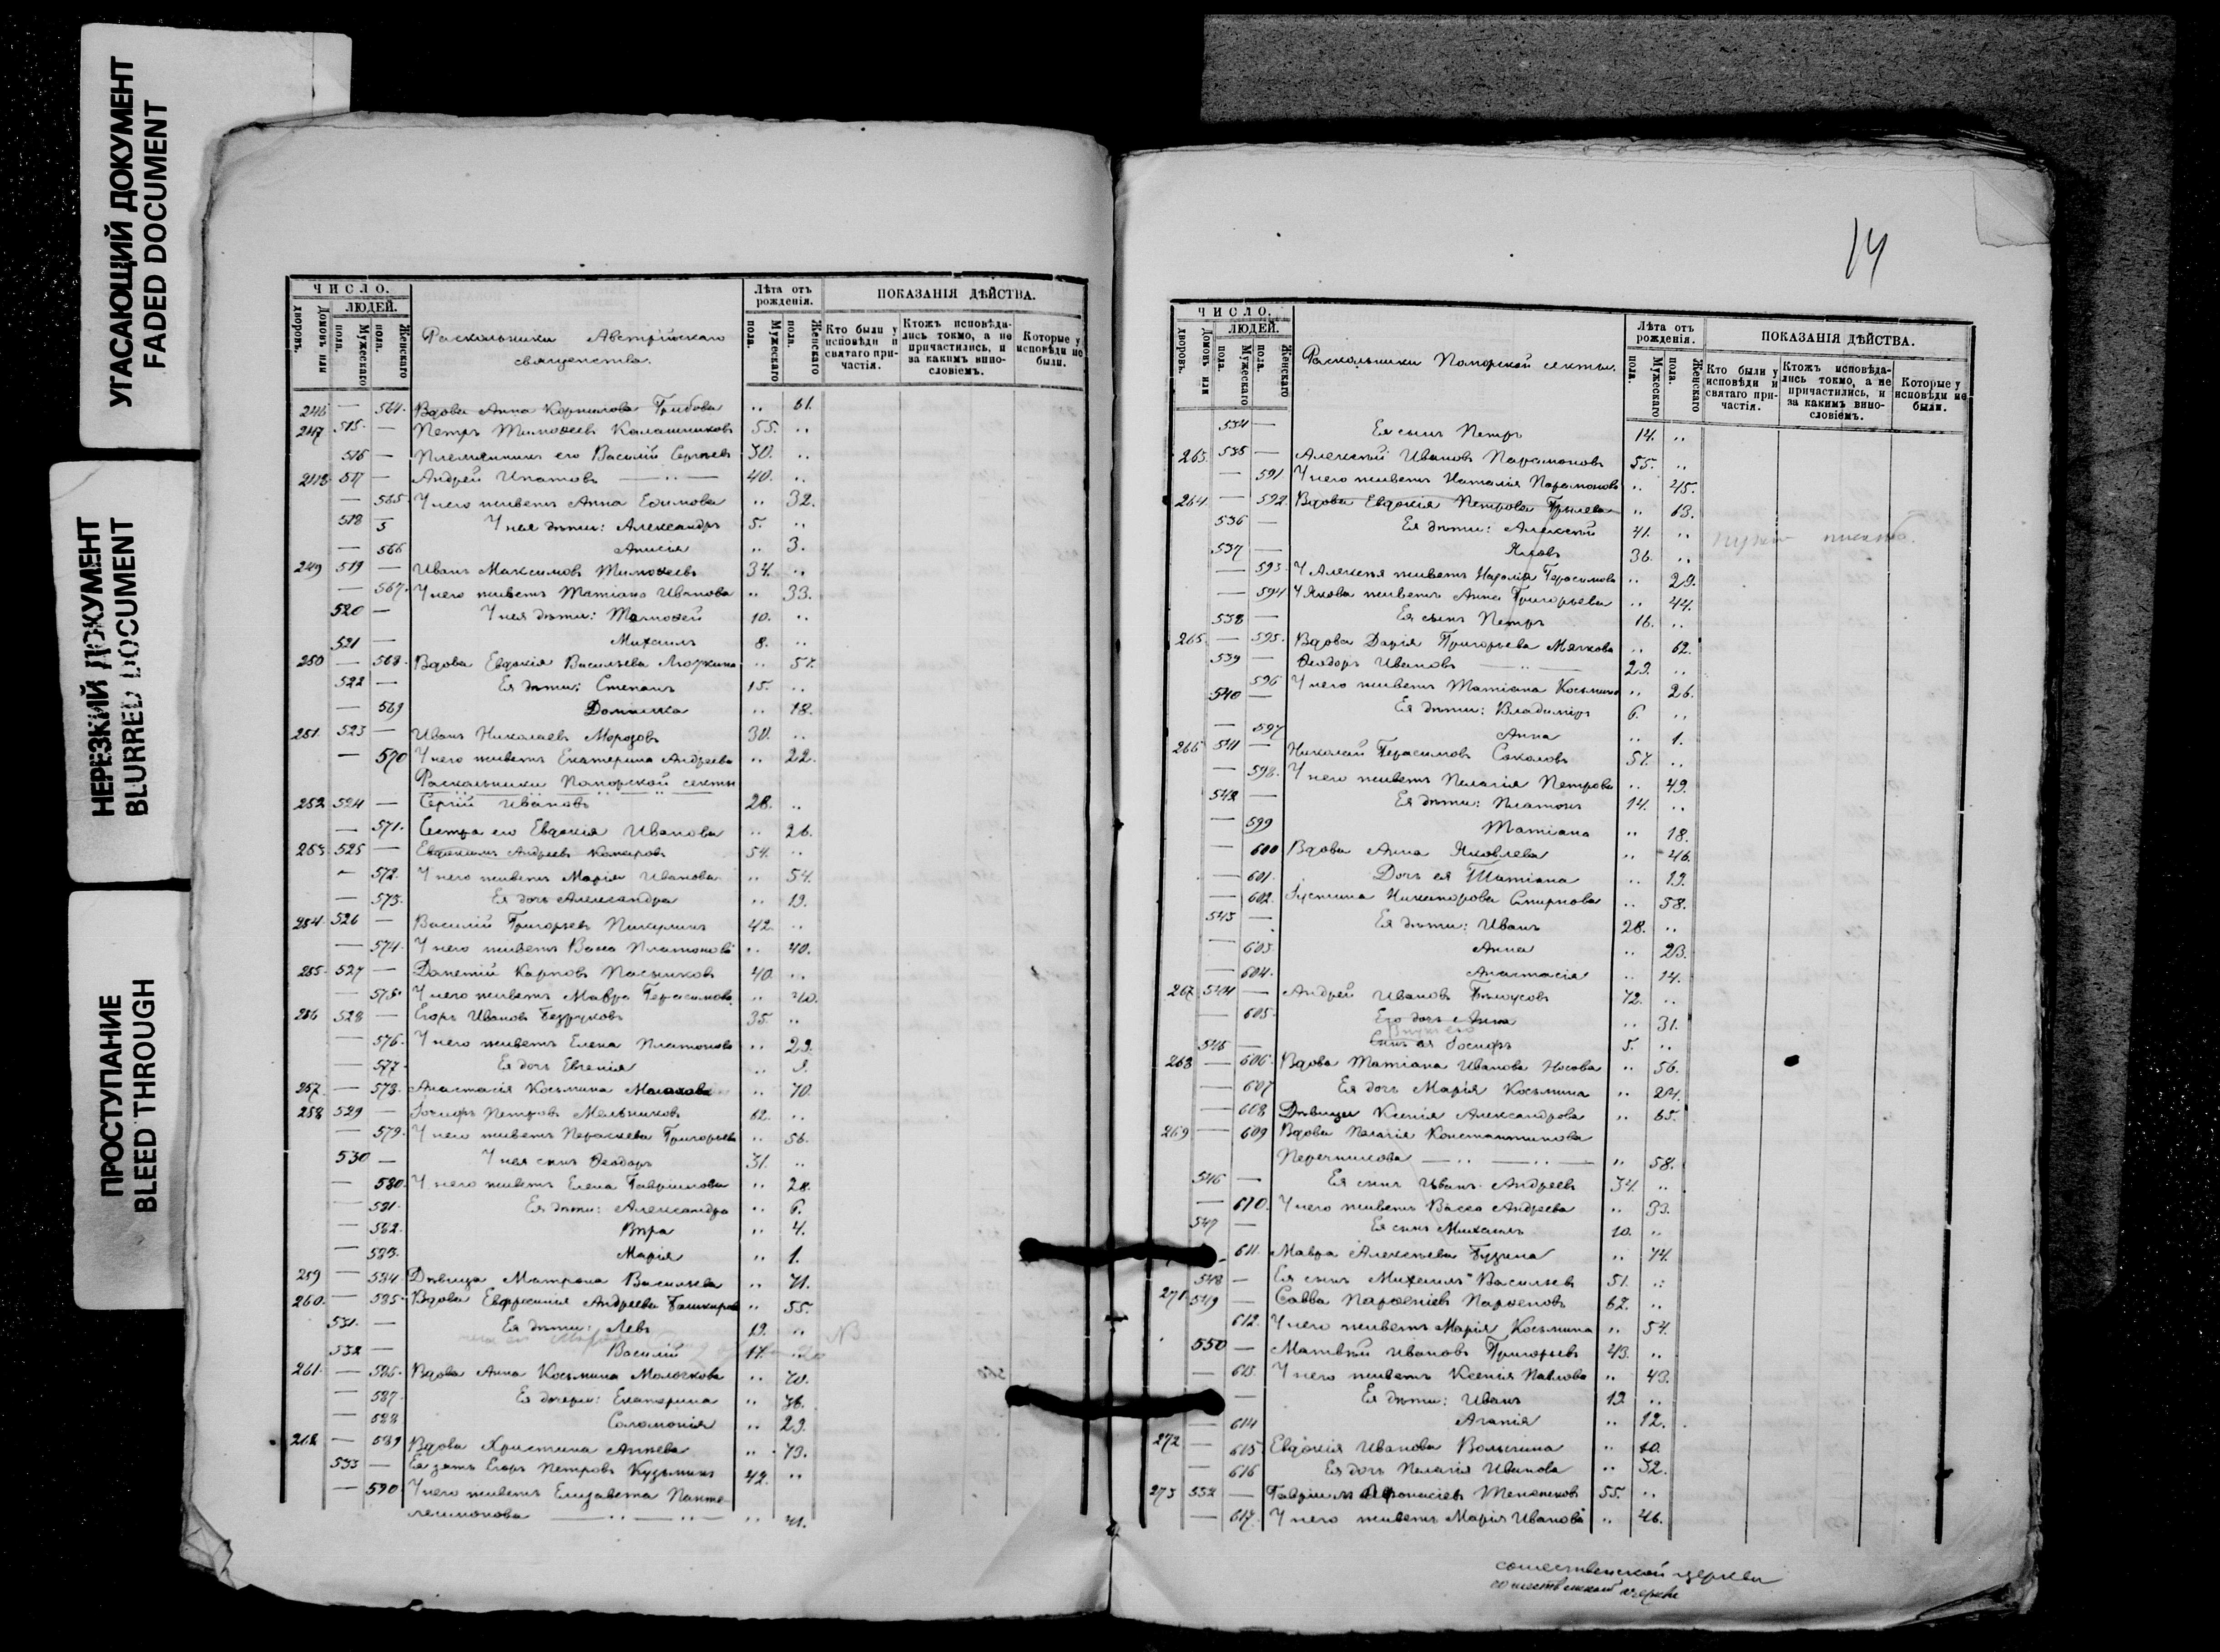 УГАСАЮЩИЙ ДОКУМЕНТ
FADED DOCUMENT
НЕРЕЗКИЙ ДОКУМЕНТ
BLURRED DOCUMENT
ПРОСТУПАНИЕ
BLEED THROUGH
ЧИСЛО.
ЛЮДЕЙ.
Домовъ или дворовъ.
Мужескаго пола.
Женскаго пола.
Раскольники Австрійскаго
священства.
Лѣта отъ рожденія.
Мужескаго пола.
Женскаго пола.
ПОКАЗАНІЯ ДѢЙСТВА.
Кто были у исповѣди и святаго причастія.
Ктожъ исповѣдались токмо, а не причастились, и за какимъ винословіемъ.
Которые у исповѣди не были.
246 — 564. Вдова Анна Корнилова Грибова .. 61.
247 515 — Петръ Тимоѳеевъ Калашниковъ 55. ..
516 — Племянникъ его Василій Сергѣевъ 30. ..
248 517 — Андрей Ипатовъ — .. — 40. ..
— 565 У него живетъ Анна Ефимова .. 32.
518 У нея дѣти: Александръ 5. ..
— 566 Анисія .. 3.
249 519 — Иванъ Максимовъ Тимоѳеевъ 34. ..
— 567. У него живетъ Татіана Иванова .. 33.
520 — У нея дѣти: Тимоѳей 10. ..
521 — Михаилъ 8. ..
250 — 568. Вдова Евдокія Васильева .. 57.
522 — Ея дѣти: Степанъ 15. ..
— 569 Домника .. 18.
251. 523 — Иванъ Николаевъ Морозовъ 30. ..
— 570 У него живетъ Екатерина Андреева .. 22.
Раскольники Поморской секты
252 524 — Сергій Ивановъ 28. ..
— 571. Сестра его Евдокія Иванова .. 26.
253. 525 — Евдокимъ Андреевъ 54. ..
— 572. У него живетъ Марія Иванова .. 54.
— 573. Ея дочь Александра .. 19.
254. 526 — Василій Григорьевъ Пикулинъ 42. ..
— 574. У него живетъ Васса Платонова .. 40.
255. 527 — Карповъ Пасынковъ 40. ..
— 575. У него живетъ Мавра Герасимова .. 40.
256 528 — Егоръ Ивановъ Безруковъ 35. ..
— 576. У него живетъ Елена Платонова .. 29.
— 577 Ея дочь Евгенія ..
257. — 578. Анастасія Косьмина .. 70.
258 529 — Іосифъ Петровъ Мельниковъ 62. ..
— 579. У него живетъ Параскева Григорьева .. 56.
530 — У нея сынъ Ѳеодоръ 31. ..
— 580. У него живетъ Елена Гавріилова .. 28.
— 581. Ея дѣти: Александра .. 6.
— 582. Вѣра .. 4.
— 583. Марія .. 1.
259 — 584. Дѣвица Матрона Васильева .. 71.
260. — 585. Вдова Евфросинія Андреева .. 55.
531. — Ея дѣти: Левъ 19. ..
532 — Василій 17. ..
261. — 586. Вдова Анна Косьмина Молочкова .. 70.
— 587. Ея дочери: Екатерина ..
— 588 Соломонія .. 29.
262 — 589 Вдова Христина .. 73.
533 — Ея зять Егоръ Петровъ Кузьминъ 42. ..
— 590. У него живетъ Елизавета Панте-
леимонова — .. — .. — .. 41.
14
ЧИСЛО.
ЛЮДЕЙ.
Домовъ или дворовъ.
Мужескаго пола.
Женскаго пола.
Раскольники Поморской секты.
Лѣта отъ рожденія.
Мужескаго пола.
Женскаго пола.
ПОКАЗАНІЯ ДѢЙСТВА.
Кто были у исповѣди и святаго причастія.
Ктожъ исповѣдались токмо, а не причастились, и за какимъ винословіемъ.
Которые у исповѣди не были.
534 — Ея сынъ Петръ 14. ..
263. 535 — Алексѣй Ивановъ Парамоновъ 55. ..
— 591 У него живетъ Наталія .. 45.
264. — 592. Вдова Евдокія Петрова .. 63.
536 — Ея дѣти: Алексѣй 41. ..
537 — Яковъ 36. ..
— 593. У Алексѣя живетъ Герасимова .. 29.
— 594 У Якова живетъ Анна Григорьева .. 44.
538 — Ея сынъ Петръ 16. ..
265. — 595. Вдова Дарія Григорьева Мягкова .. 62.
539 — Ѳеодоръ Ивановъ — .. — 29. ..
596 У него живетъ Татіана Косьмина .. 26.
540 — Ея дѣти: Владиміръ 6. ..
— 597 Анна .. 1.
266 541 — Николай Герасимовъ Соколовъ 57. ..
— 598. У него живетъ Пелагія Петрова .. 49.
542 — Ея дѣти: Платонъ 14. ..
— 599 Татіана .. 18.
— 600 Вдова Анна Яковлева .. 46.
— 601. Дочь ея Татіана .. 19.
— 602. Іустина Никанорова Смирнова .. 58.
543 — Ея дѣти: Иванъ 28. ..
— 603 Анна .. 23.
— 604. Анастасія .. 14.
267 544 — Андрей Ивановъ Бѣлоусовъ 72. ..
— 605. Его дочь Анна .. 31.
Внукъ его
545 — Сынъ ея Іосифъ 5. ..
268 — 606. Вдова Татіана Иванова Носова .. 56.
— 607 Ея дочь Марія Косьмина .. 24.
— 608 Дѣвица Ксенія Александрова .. 65.
269 — 609 Вдова Пелагія Константинова
Перечникова — .. — .. — .. 58.
546 — Ея сынъ Иванъ Андреевъ 34. ..
— 610. У него живетъ Васса Андреева .. 33.
547 — Ея сынъ Михаилъ 10. ..
611. Мавра Алексѣева Бузина .. 74.
548 — Ея сынъ Михаилъ Васильевъ 51. ..
271. 549 — Савва Парѳеніевъ Парѳеновъ 62. ..
612. У него живетъ Марія Косьмина .. 54.
550 — Матвѣй Ивановъ Григорьевъ 43. ..
— 613. У него живетъ Ксенія Павлова .. 43.
— Ея дѣти: Иванъ 19 ..
— 614 Агапія .. 12.
272 — 615 Евдокія Иванова Волынина ..
— 616 Ея дочь Пелагія Иванова .. 32.
273 552 — Гавріилъ 55. ..
— 617. У него живетъ Марія Иванова .. 46.
сошественской церкви
сошественской церкви